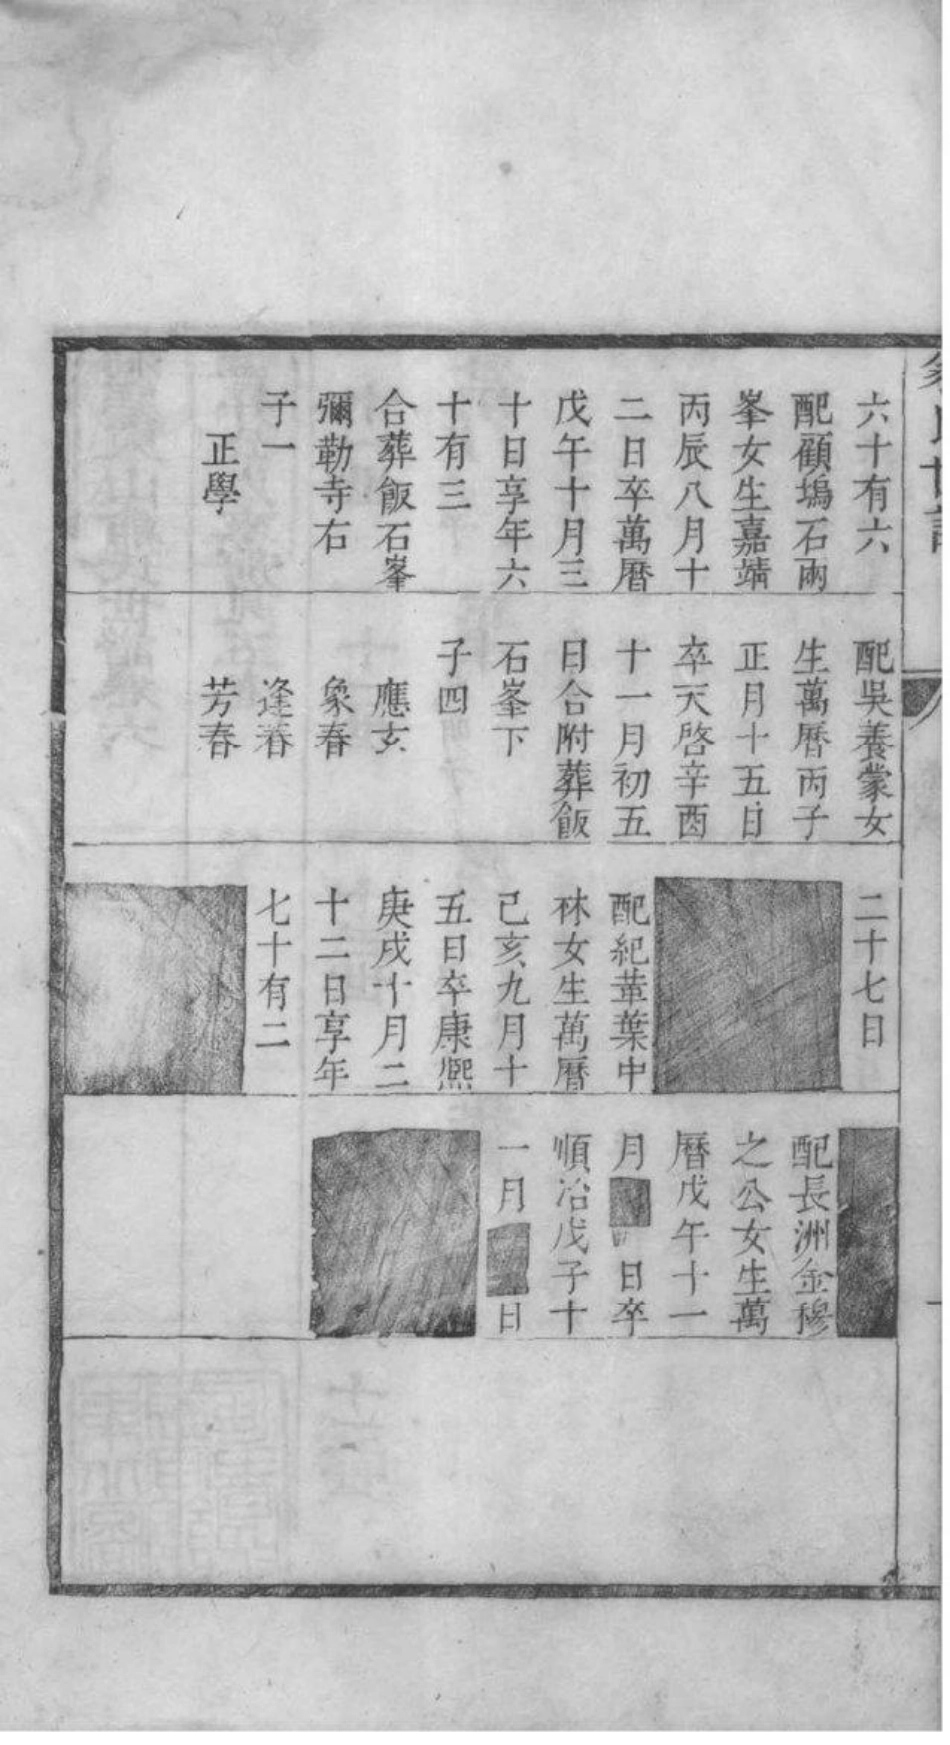 六十有六
配顧塢石兩
峯女生嘉靖
丙辰八月十
二日卒萬曆
戊午十月三
十日享年六
十有三
合葬飯石峯
彌勒寺右
子一
正學
配吳養蒙女
生萬曆丙子
正月十五日
卒天啓辛酉
十一月初五
日合附葬飯
石峯下
子四
應玄
象春
逢春
芳春
二十七日
配紀葉中
秝女生萬曆
己亥九月十
五日卒康熙
庚戌十月二
十二日享年
七十有二
配長洲金穆
之公女生萬
曆戊午十一
月 日卒
順治戊子十
一月 日